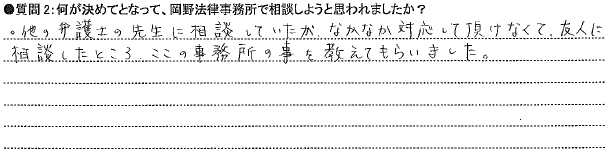 ●質問2:何が決めてとなって、岡野法律事務所で相談しようと思われましたか?
。他の弁護士の先生に相談していたが、なかなか対応して頂けなくて、友人に
相談したところ、ここの事務所の事を教えてもらいました。